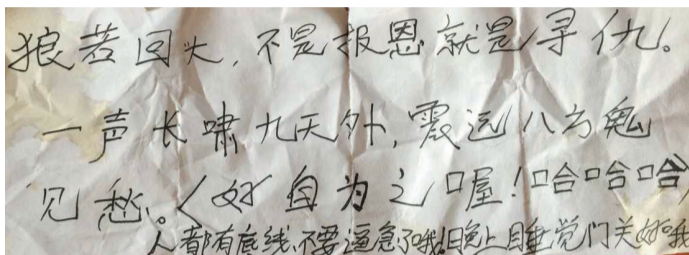 狼若回头,不是报恩就是寻仇。
一声长啸九天外,震远八方鬼
见愁。〈好自为之喔!哈哈哈
人都有底线,不要逼急了哦!晚上睡觉门关好哦